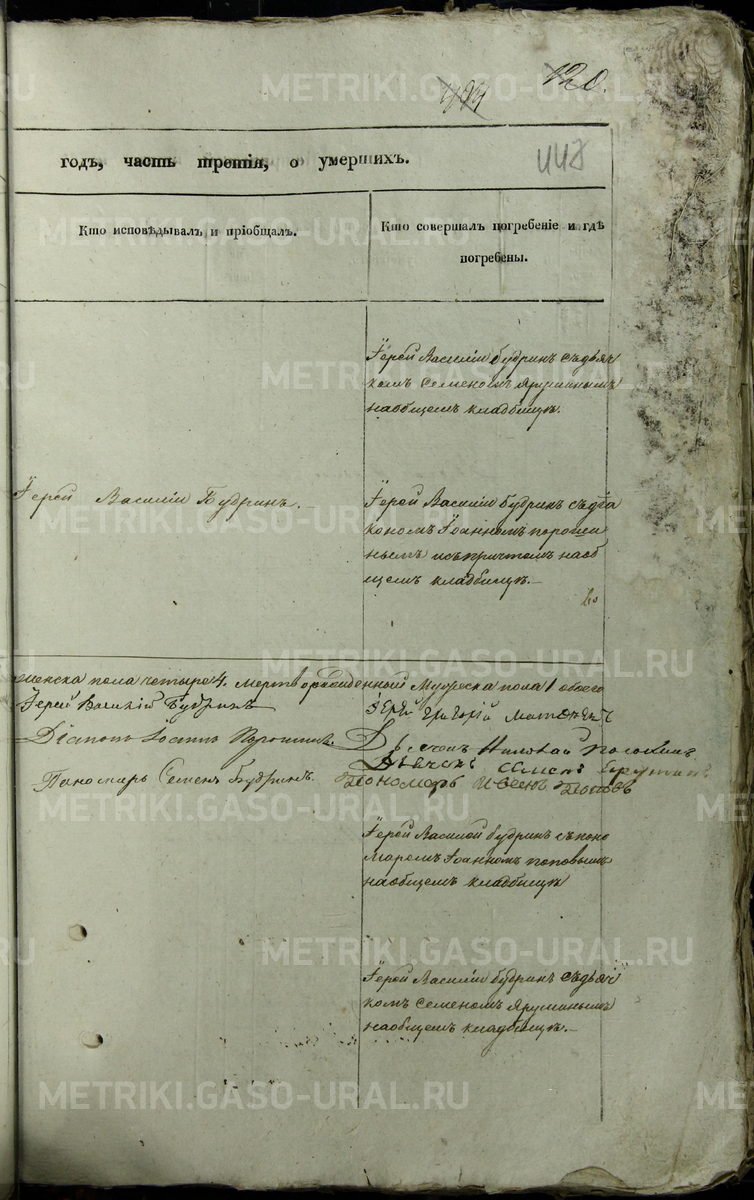 120.
448
годъ, часть третія, о умершихъ.
Кто исповѣдывалъ и пріобщалъ.
Кто совершалъ погребеніе и гдѣ
погребены.
Іерей Василіи будринъ съдьяч
комъ Семеномъ Ярушинымъ
наобщемъ кладбищѣ.
Іерей Василіи Будринъ.
Іерей Василіи будринъ съдіа
кономъ Іоанномъ пороши
нымъ исъпричтомъ наоб
щемъ кладбищѣ.
женска пола четыре 4. мертворожденный Мужеска пола 1 обоего
Іерей Василій Будринъ
Іерей Григорій
Діаконъ Іоаннъ Порошинъ
Діаконъ Николай
Дьячекъ Семенъ
Пономарь Семенъ Будринъ.
Пономарь Иванъ Поповъ
Іерей Василей будринъ съпоно
маремъ Іоанномъ поповымъ
наобщемъ кладбищѣ
Іерей Василіи будринъ съдьяч
комъ Семеномъ Ярушинымъ
наобщемъ кладбищѣ.
METRIKI.GASO-URAL.RU